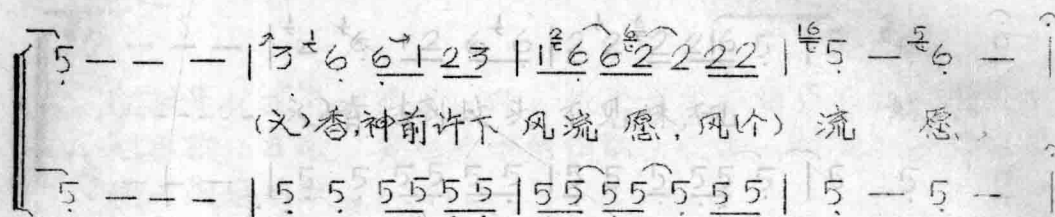 5 — — — | 3 6 6 1 2 3 | 1 6 6 2 2 2 2 | 5 — 6 — |
(义)香,神前许下 风流愿,风(个) 流 愿,
5 — — — | 5 5 5 5 5 5 | 5 5 5 5 5 5 5 | 5 — 5 — |